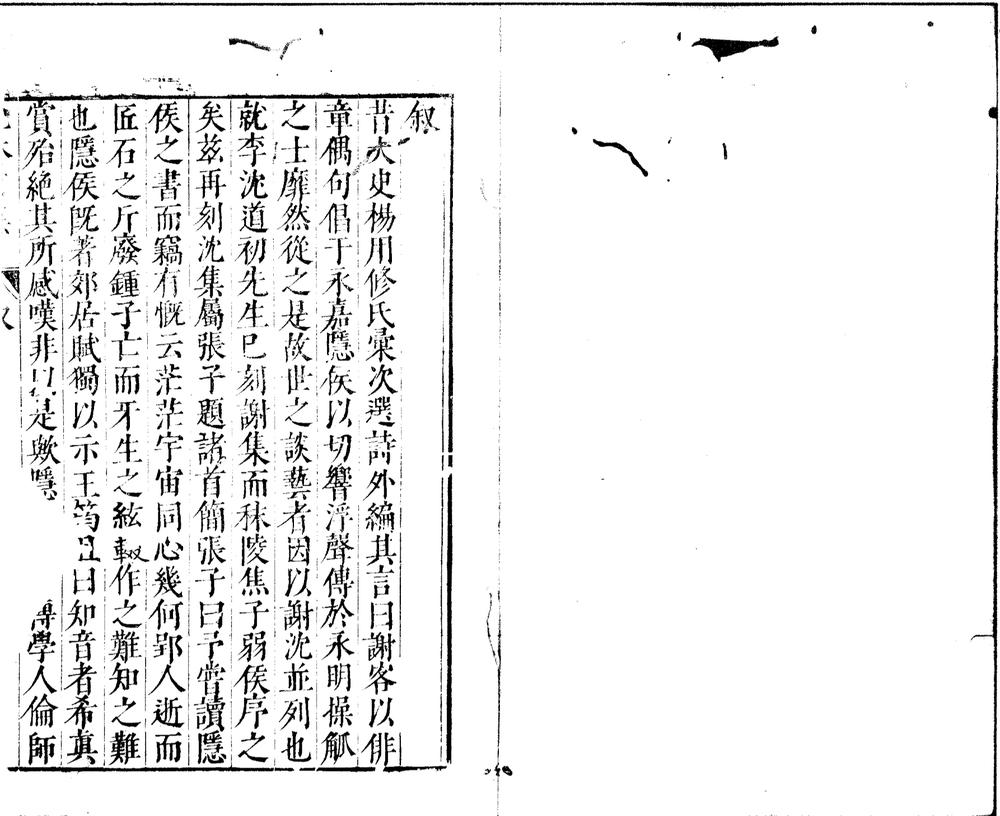 叙
昔太史楊用修氏彙次選詩外編其言曰謝客以俳
章偶句倡于永嘉隱侯以切響浮聲傳於永明操觚
之士靡然從之是故世之談藝者因以謝沈並列也
就李沈道初先生巳刻謝集而秣陵焦子弱侯序之
矣茲再刻沈集屬張子題諸首簡張子曰予嘗讀隱
侯之書而竊有慨云茫茫宇宙同心幾何郢人逝而
匠石之斤廢鍾子亡而牙生之絃輟作之難知之難
也隱侯旣著郊居賦獨以示王筠且曰知音者希真
賞殆絕其所感嘆非以是歟隱
博學人倫師